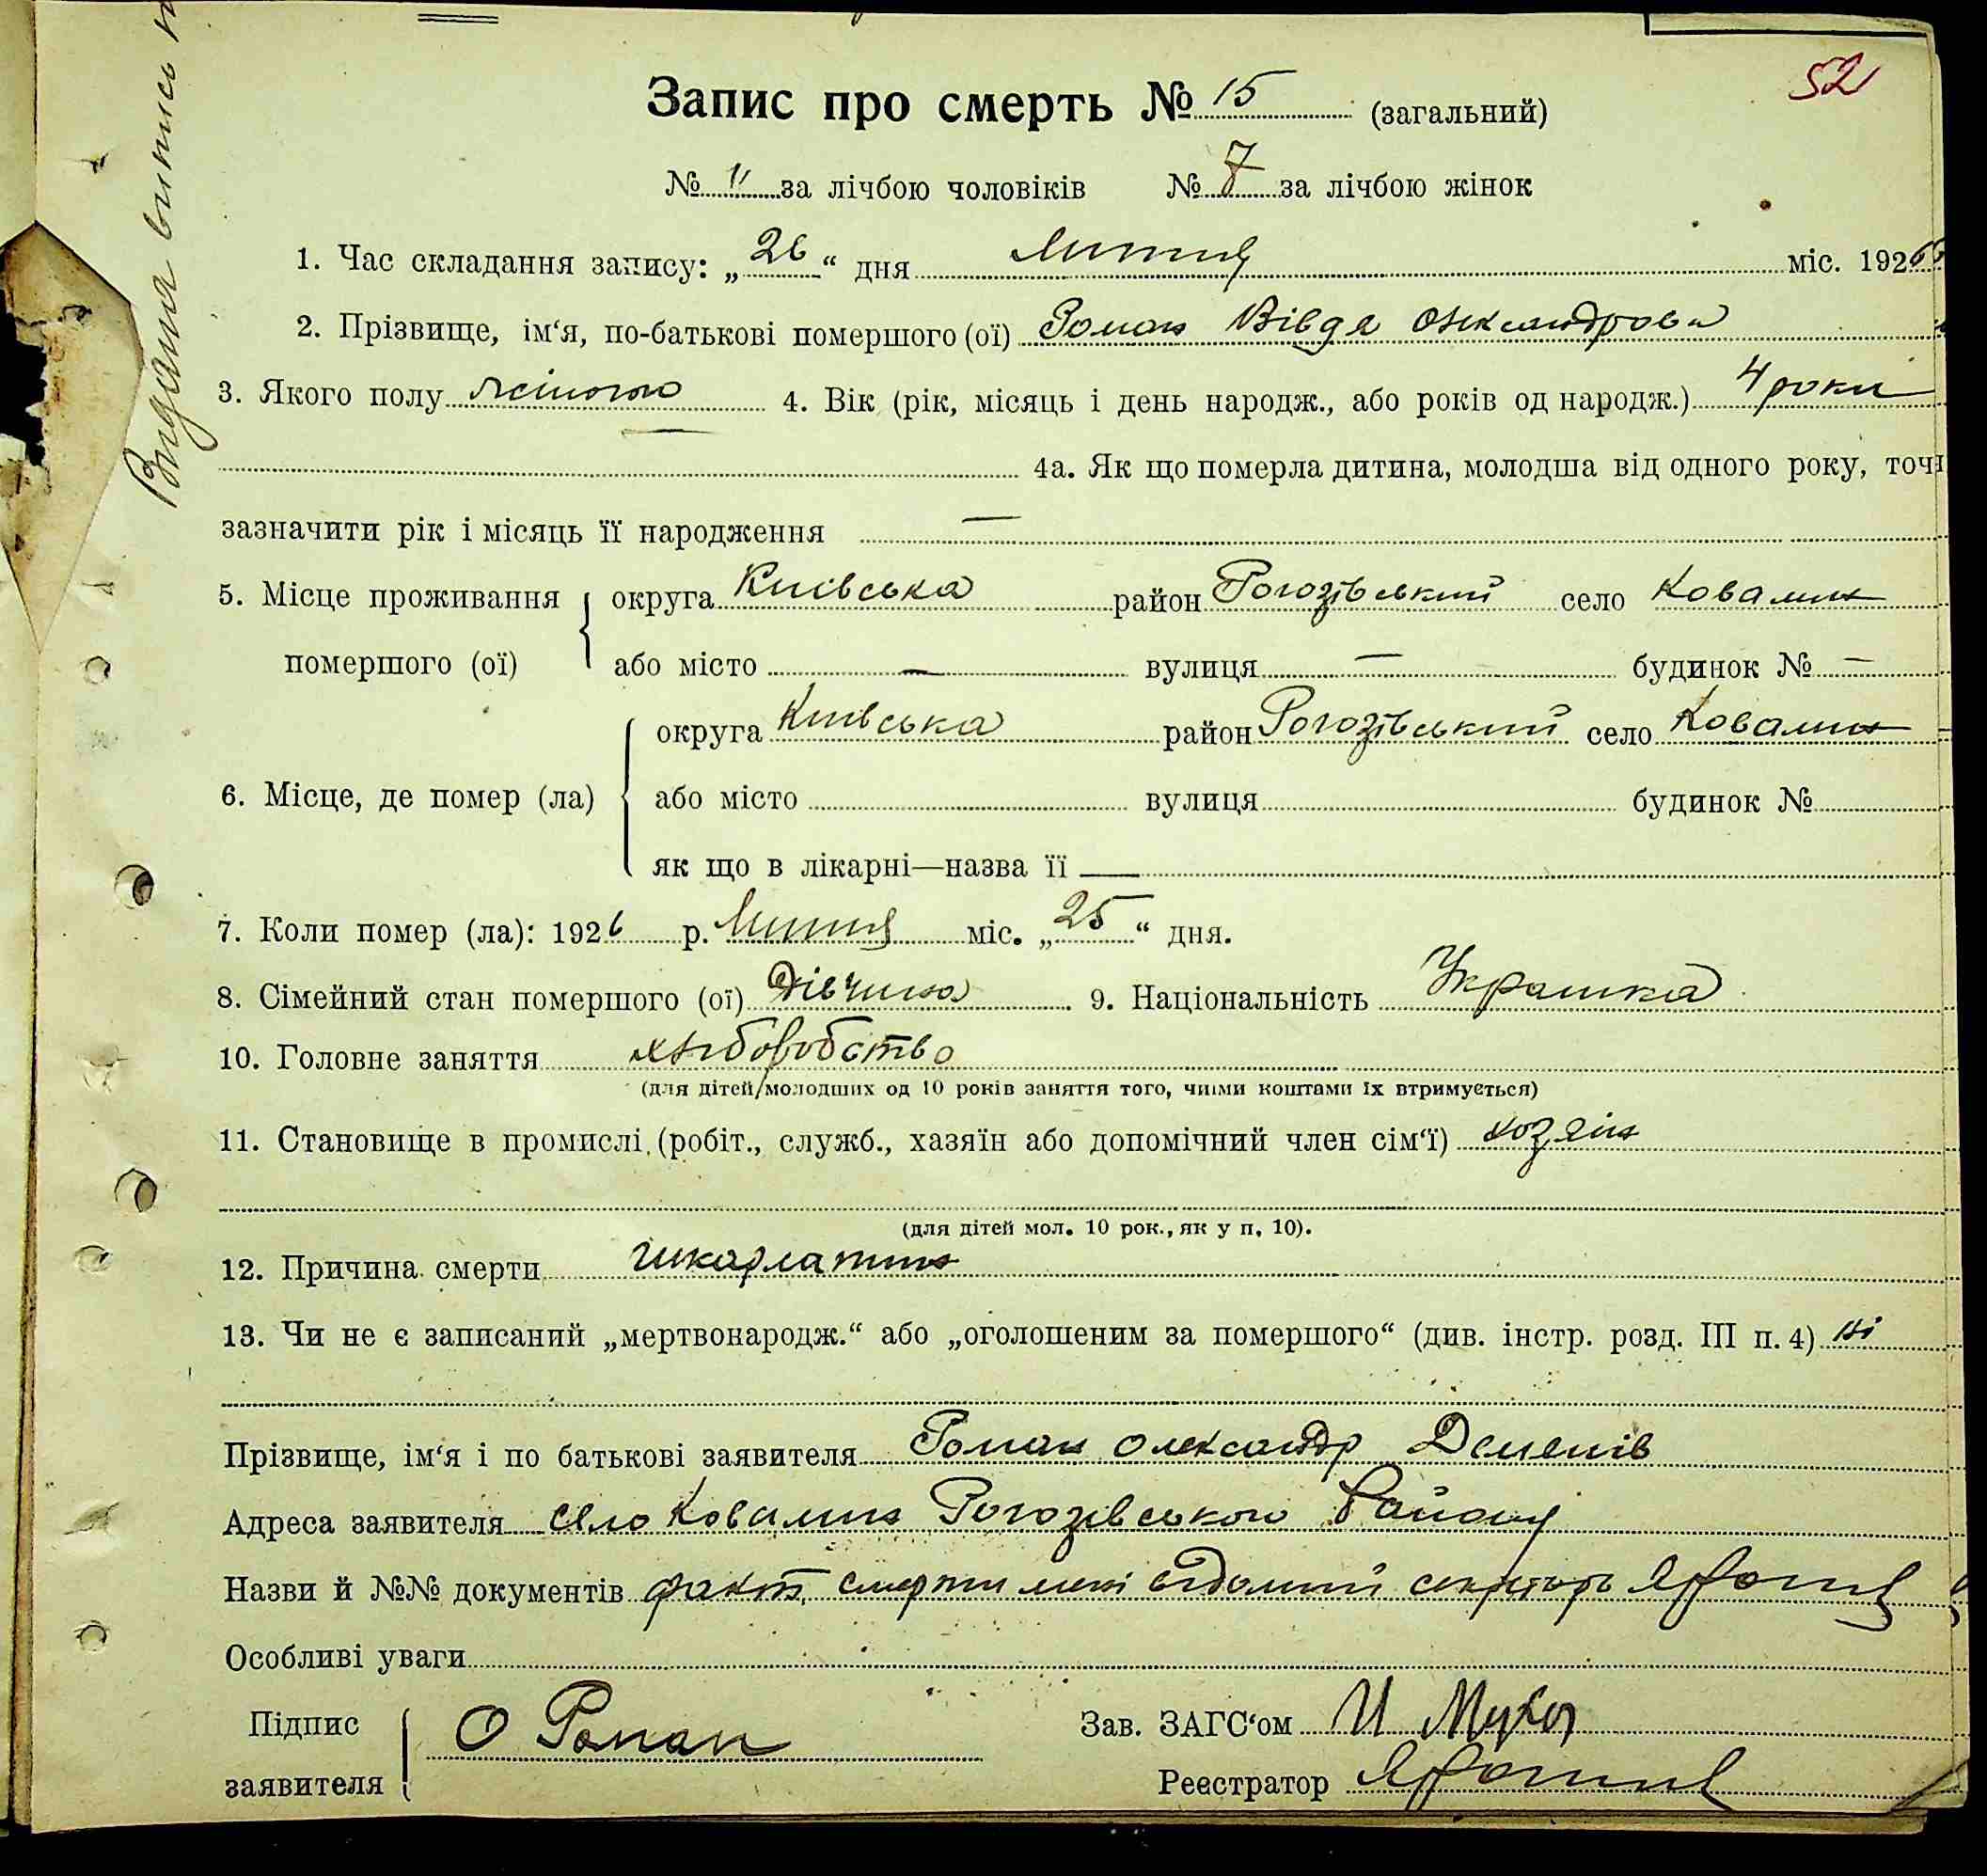 52
Запис про смерть № 15 (загальний)
№ " за лічбою чоловіків № 7 за лічбою жінок
1. Час складання запису: „26“ дня Липня міс. 1926
2. Прізвище, ім‘я, по-батькові помершого (ої) Роман Вівдя Олександрова
3. Якого полу жіночо 4. Вік (рік, місяць і день народж., або років од народж.) 4 роки
4а. Як що померла дитина, молодша від одного року, точн
зазначити рік і місяць її народження —
5. Місце проживання округа Київська район Рогозівський село Ковалин
помершого (ої) або місто — вулиця — будинок № —
округа Київська район Рогозівський село Ковалин
6. Місце, де помер (ла) або місто вулиця будинок №
як що в лікарні—назва її —
7. Коли помер (ла): 1926 р. Липня міс. „25“ дня.
8. Сімейний стан помершого (ої) Дівчина 9. Національність Украінка
10. Головне заняття хліборобство
(для дітей молодших од 10 років заняття того, чиїми коштами їх втримується)
11. Становище в промислі (робіт., служб., хазяїн або допомічний член сім‘ї) хозяін
(для дітей мол. 10 рок., як у п. 10).
12. Причина смерти шкарлатина
13. Чи не є записаний „мертвонародж.“ або „оголошеним за помершого“ (див. інстр. розд. III п. 4) ні
Прізвище, ім‘я і по батькові заявителя Роман Олександр Деменів
Адреса заявителя село Ковалин Рогозівського Району
Назви й №№ документів факт смерти мені відомий секретарь
Особливі уваги
Підпис заявителя О Роман Зав. ЗАГС‘ом И
Реєстратор
Видана випись